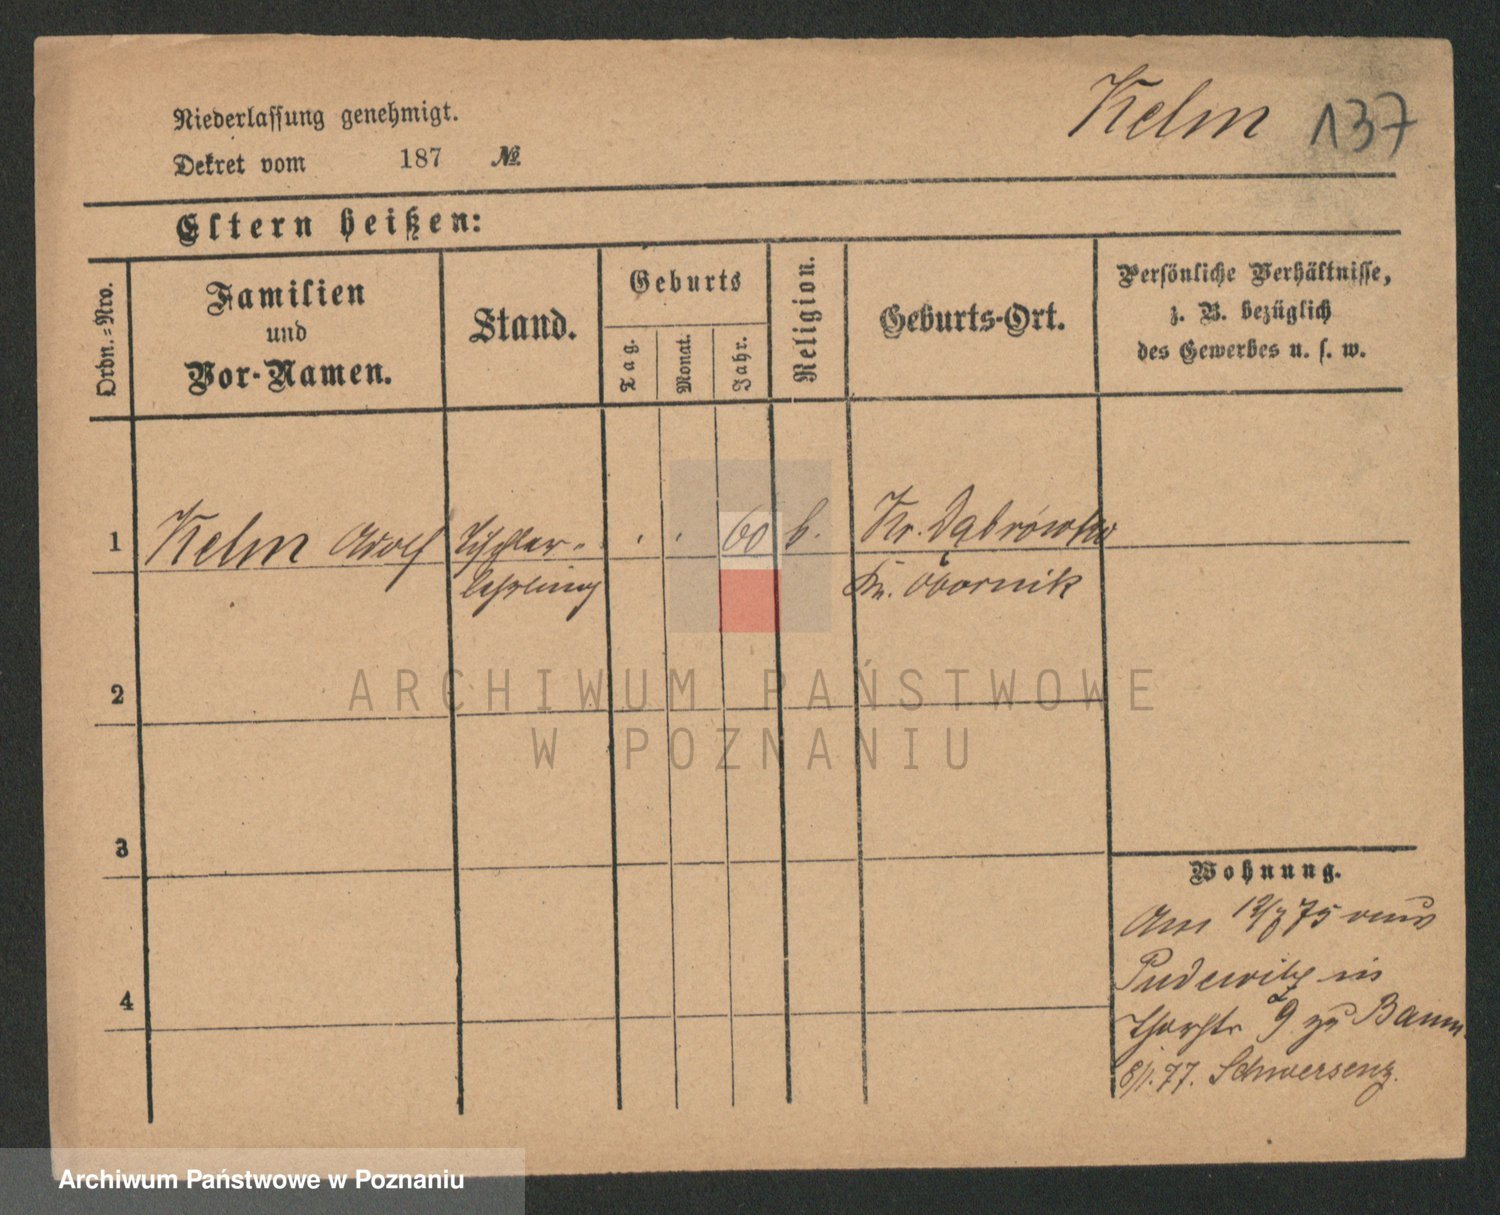 Kelm 137
Niederlassung genehmigt.
Dekret vom 187 №
Eltern heißen:
Ordn.-Nro.
Familien
und
Vor-Namen.
Stand.
Geburts
Tag.
Monat.
Jahr.
Religion.
Geburts-Ort.
Persönliche Verhältnisse,
z. B. bezüglich
des Gewerbes u. s. w.
1 Kelm Adolf Tischler- 60 Kr. Dąbrówka
lehrling Kr. Obornik
2
3
4
Wohnung.
Am 12/7 75 aus
Pudewitz in
Thorstr 9 zu Baum
8/1. 77. Schwersenz.
ARCHIWUM PAŃSTWOWE
W POZNANIU
Archiwum Państwowe w Poznaniu